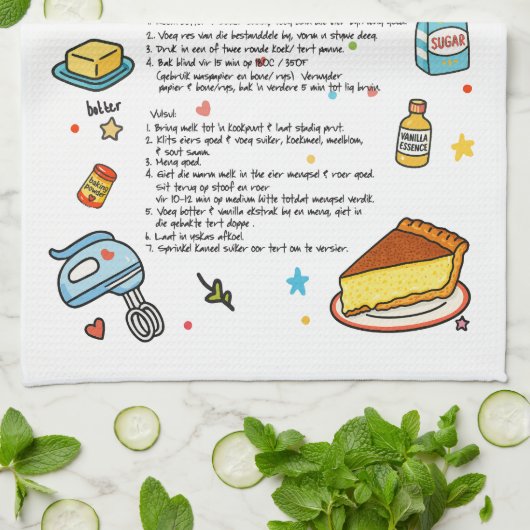 SUGAR
2. Voeg res van die bestanddele by, vorm 'n stywe deeg.
3. Druk in een of twee ronde koek/ tert panne.
4. Bak blind vir 15 min op 180C / 350F
(gebruik waspapier en bone/rys) Verwyder
papier & bone/rys, bak 'n verdere 5 min tot lig bruin.
botter
VANILLA
ESSENCE
Vulsul:
1. Bring melk tot 'n kookpunt & laat stadig prut.
2. Klits eiers goed & voeg suiker, koekmeel, meelblom,
& sout saam
3. Meng goed.
baking
powder
4. Giet die warm melk in the eier mengsel & roer goed.
Sit terug op stoof en roer
vir 10-12 min op medium hitte totdat mengsel verdik.
5. Voeg botter & vanilla ekstrak by en meng, giet in
die gebakte tert doppe.
6. Laat in yskas afkoel.
7. Sprinkel kaneel suiker oor tert om te versier.